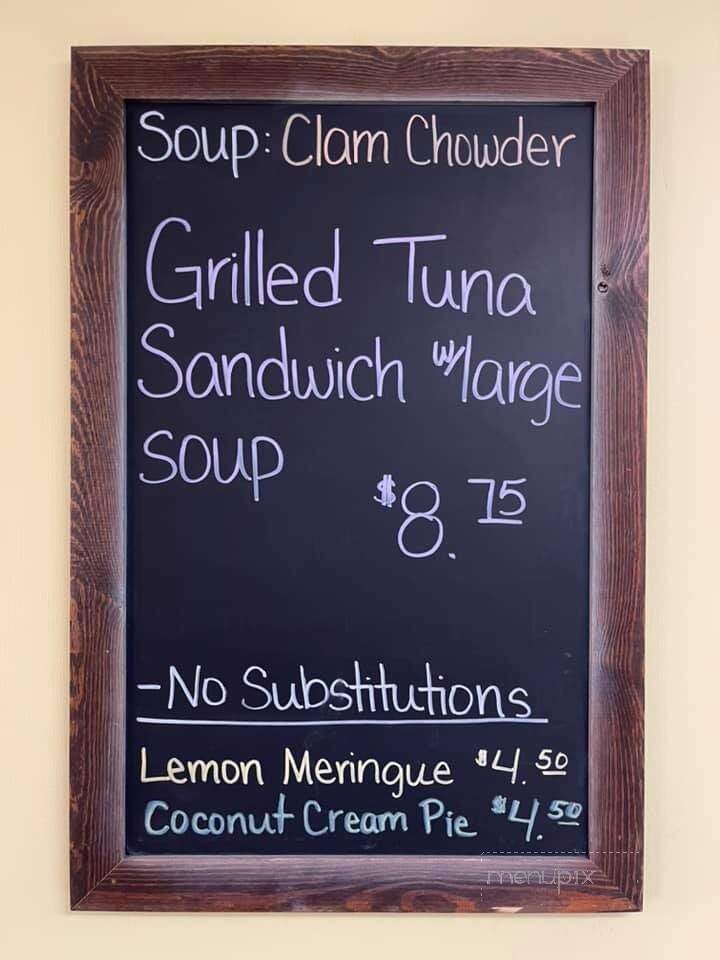 Soup: Clam Chowder
Grilled Tuna
Sandwich w/large
soup
$8.75
-No Substitutions
Lemon Meringue $4.50
Coconut Cream Pie $4.50
menupix